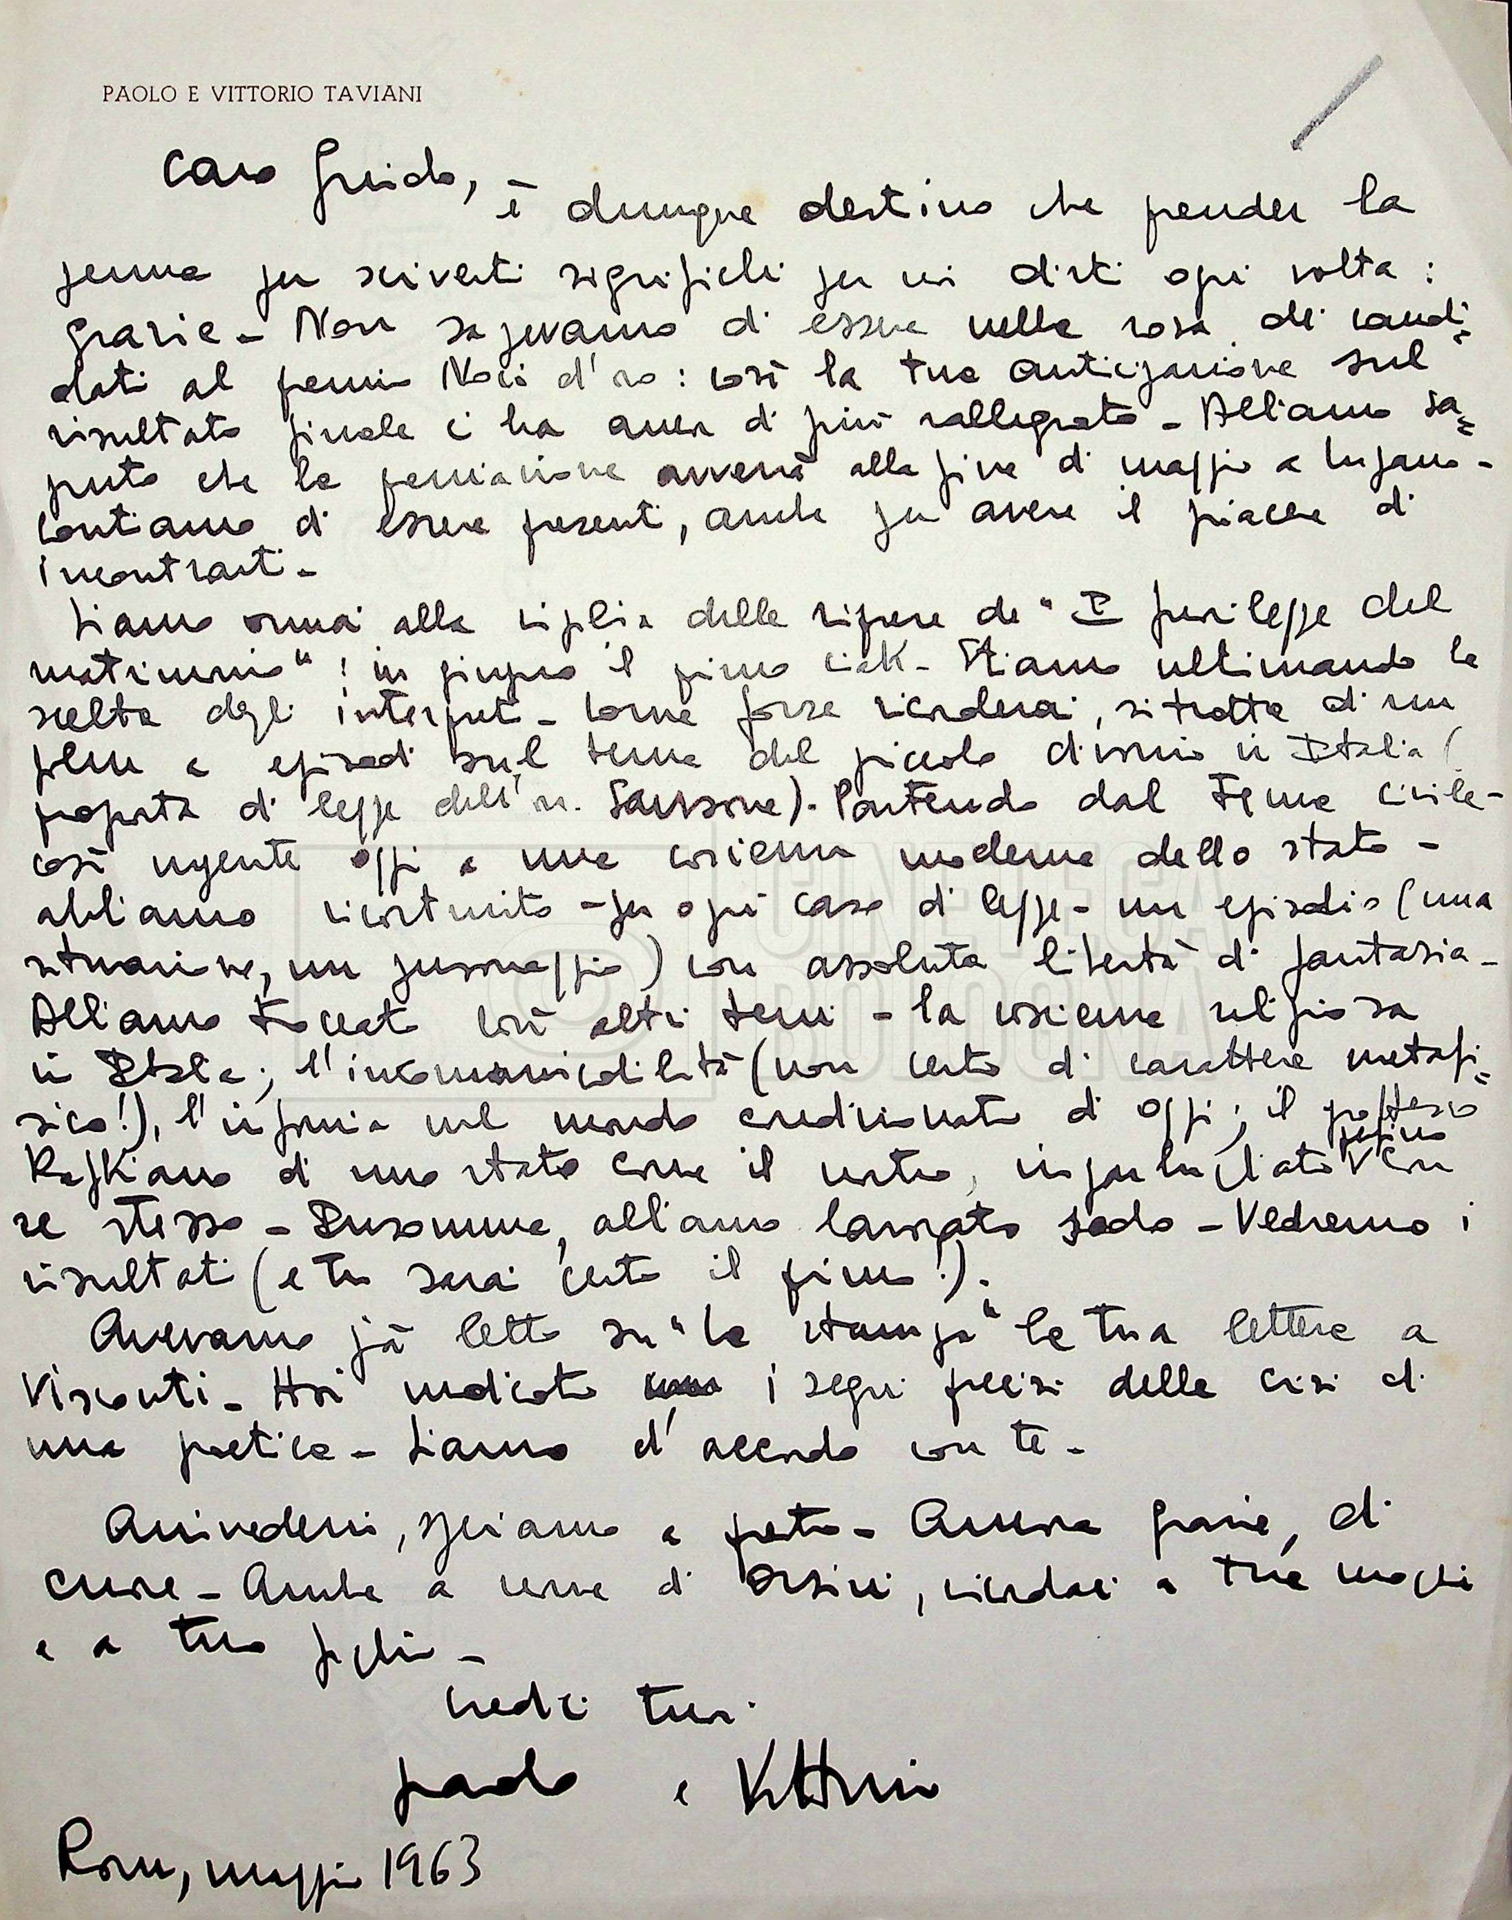 PAOLO E VITTORIO TAVIANI
Caro Guido,
è dunque destino che prender la
penna per scriverti significhi per noi dirti ogni volta:
grazie - Non sapevamo di essere nella rosa dei candi=
dati al premio Noci d'oro: così la tua anticipazione sul
risultato finale ci ha ancor di più rallegrato - Abbiamo sa=
puto che la premiazione avverrà alla fine di maggio a Lugano -
Contiamo di essere presenti, anche per avere il piacere di
incontrarti -
Siamo ormai alla vigilia delle riprese de "I fuorilegge del
matrimonio": in giugno il primo ciak - Stiamo ultimando la
scelta degli interpreti - Come forse ricorderai, si tratta di un
film a episodi sul tema del piccolo divorzio in Italia (
proposta di legge dell'on. Sansone). Partendo dal tema civile -
così urgente oggi a una coscienza moderna dello stato -
abbiamo ricostruito - per ogni caso di legge - un episodio (una
situazione, un personaggio) con assoluta libertà di fantasia -
Abbiamo toccato così altri temi - la coscienza religiosa
in Italia; l'incomunicabilità (non certo di carattere metafi=
sico!), l'ingiuria nel mondo condizionato di oggi; il grottesco
Kafkiano di uno stato come il nostro, ingarbugliato persino con
se stesso - Insomma, abbiamo lavorato sodo - Vedremo i
risultati (e tu sarai certo il primo!).
Avevamo già letto su "la stampa" la tua lettera a
Visconti - Hai indicato i segni precisi della crisi di
una poetica - Siamo d'accordo con te -
Arrivederci, speriamo a presto - Ancora grazie, di
cuore - Anche a nome di Orsini, ricordaci a tua moglie
e a tuo figlio -
Credici tuoi
paolo e Vittorio
Roma, maggio 1963
CINETECA
BOLOGNA